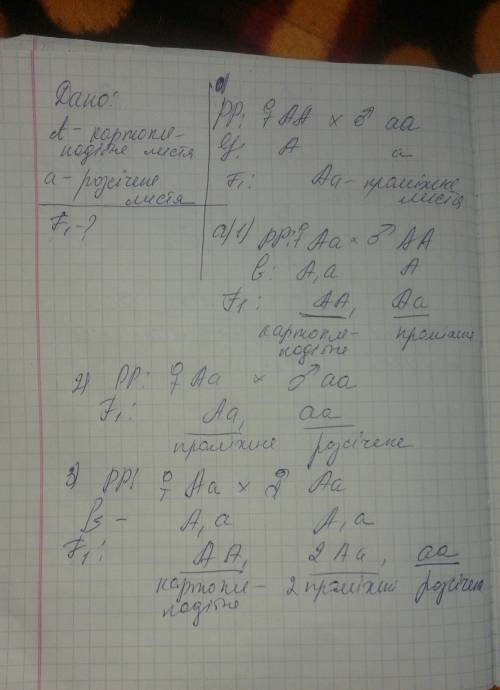 Дано:
A - картопле-
подібне листя
a - розсічене
листя
F₁ - ?
PP: ♀ AA × ♂ aa
G: A a
F₁: Aa - проміжне
листя
а) 1) PP: ♀ Aa × ♂ AA
G: A, a A
F₁: AA, Aa
картопле- проміжне
подібне
2) PP: ♀ Aa × ♂ aa
F₁: Aa, aa
проміжне розсічене
3) PP: ♀ Aa × ♂ Aa
G - A, a A, a
F₁: AA, 2Aa, aa
картопле- 2 проміжні розсічене
подібне